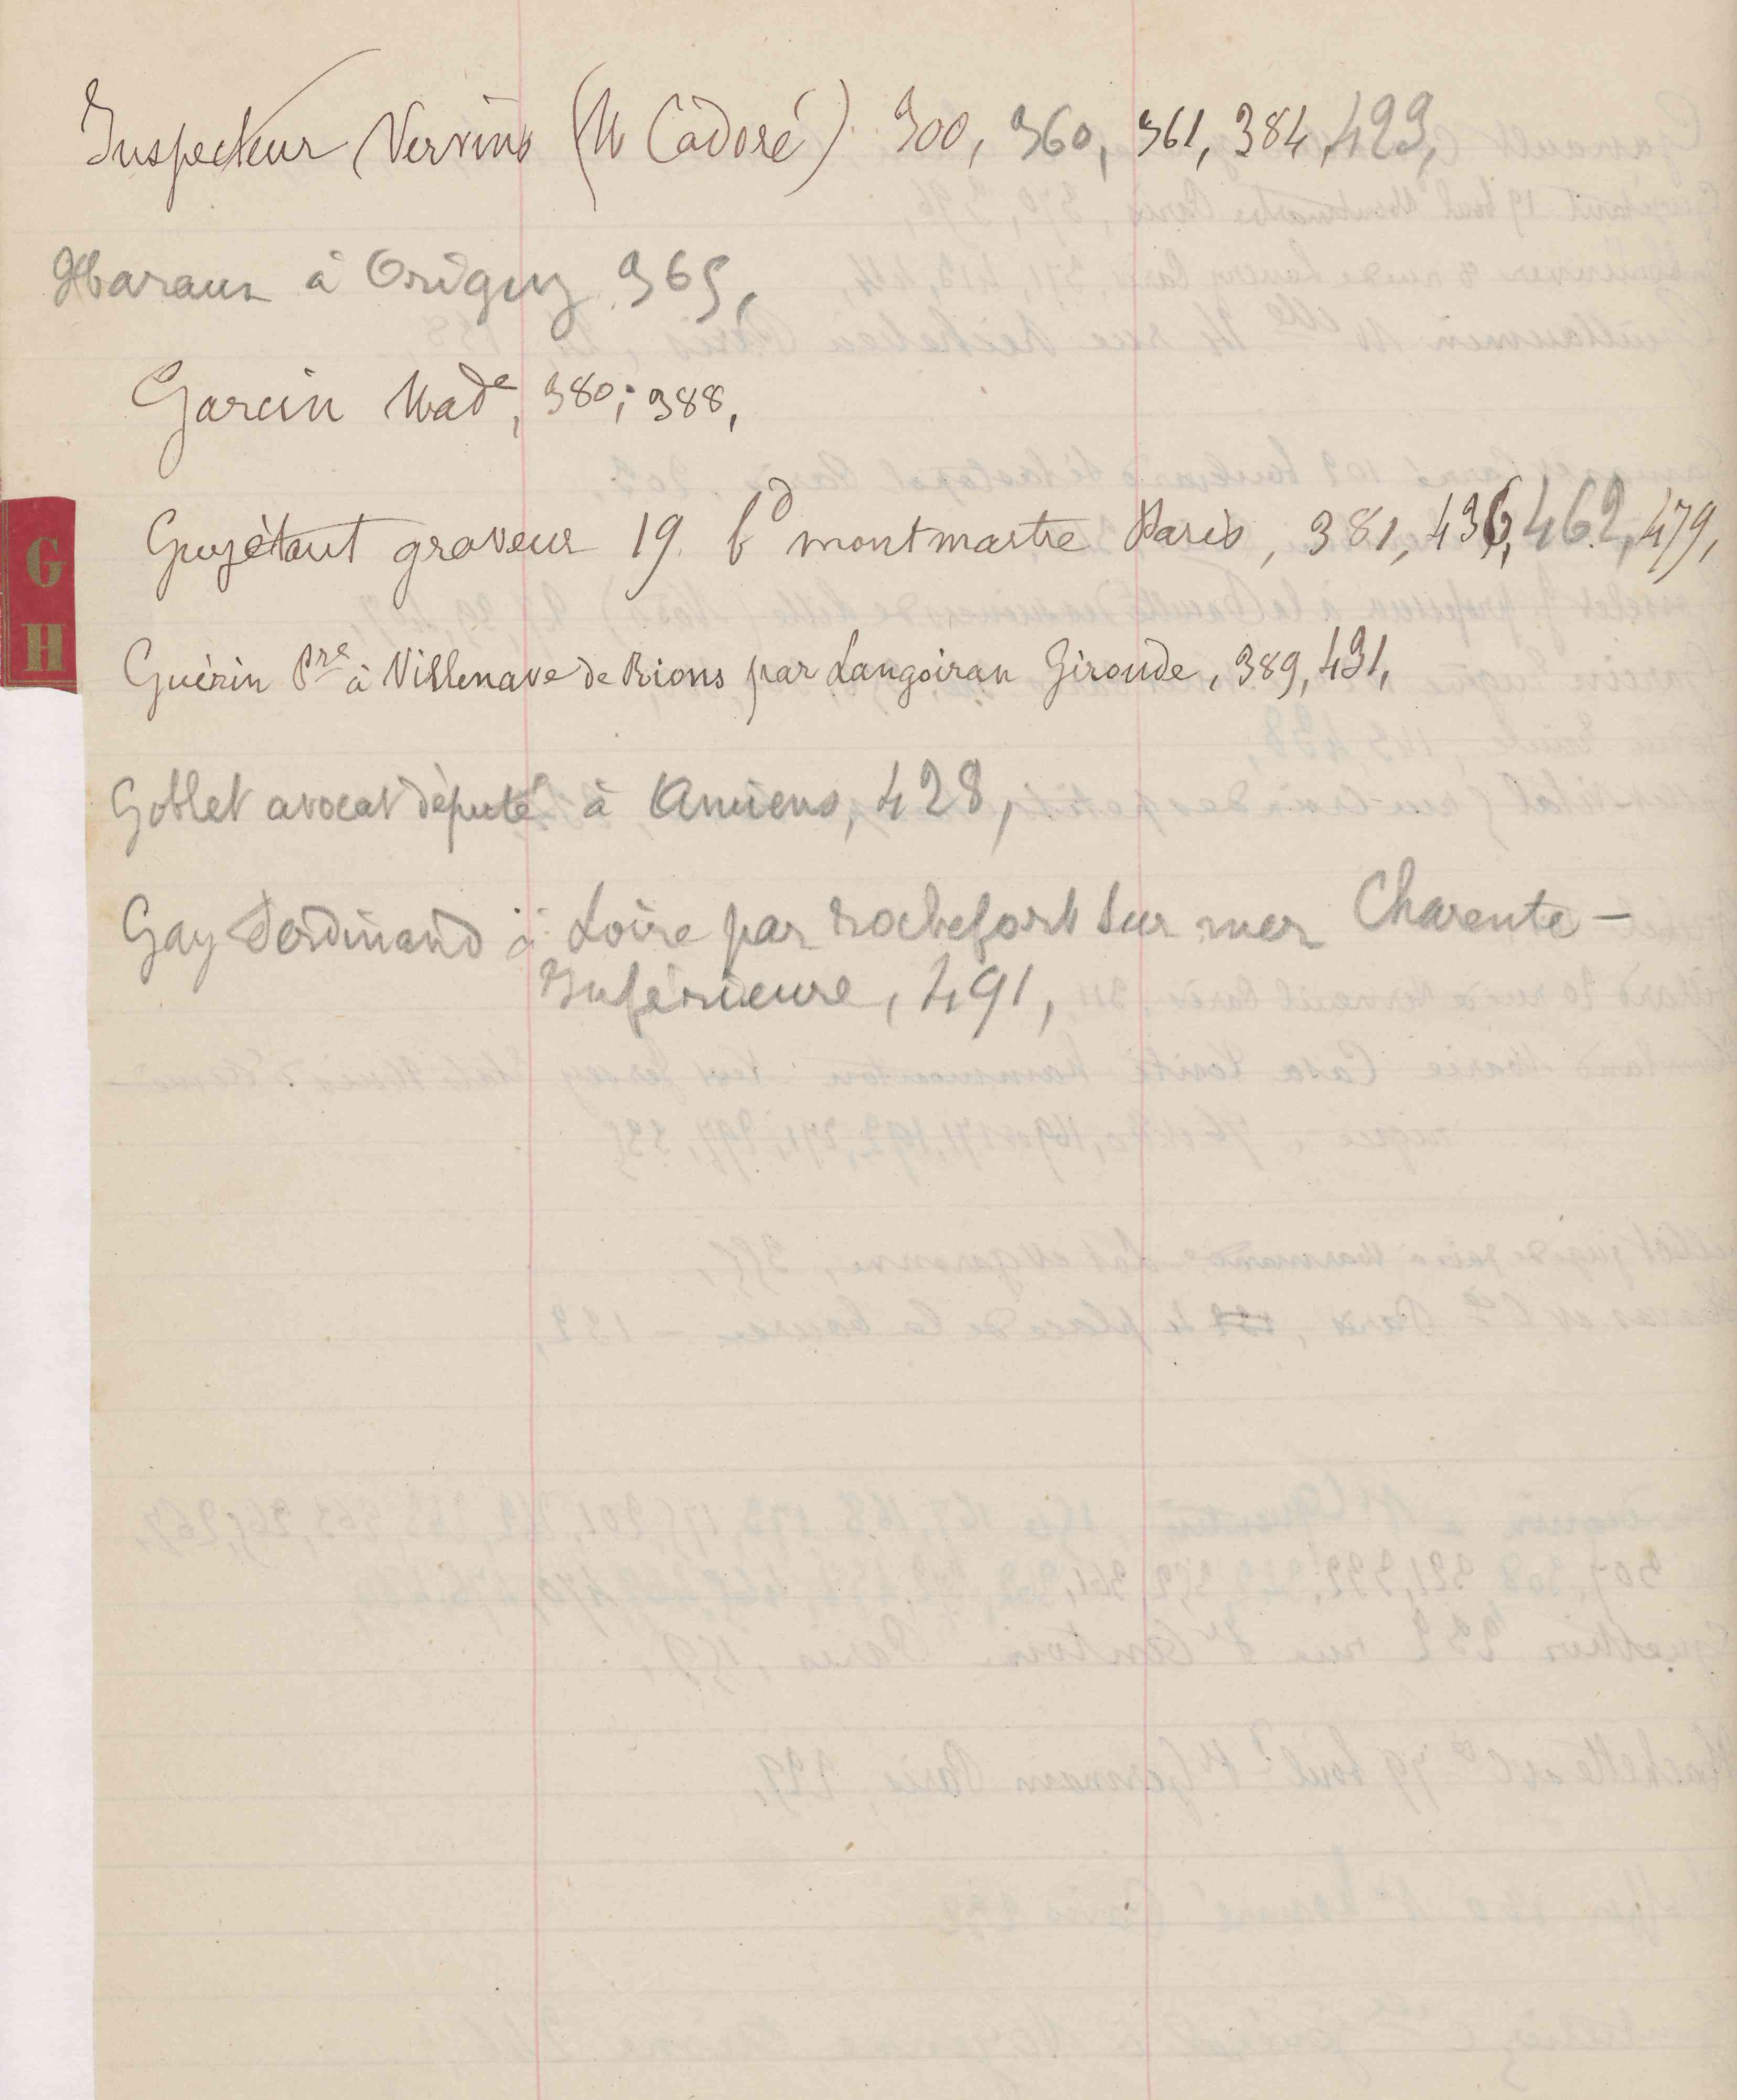 Inspecteur Vervins (M Cadoré) 300, 360, 361, 384, 423,
Haraux à Origny 365,
Garcin Made, 380, 388,
G
H
Guyétant graveur 19 bd montmartre Paris, 381, 436, 462, 479,
Guérin Pre à Villenave de Rions par Langoiran Gironde, 389, 431,
Goblet avocat député à Amiens, 428,
Gay Ferdinand à Loire par rochefort sur mer Charente –
Inférieure, 491,